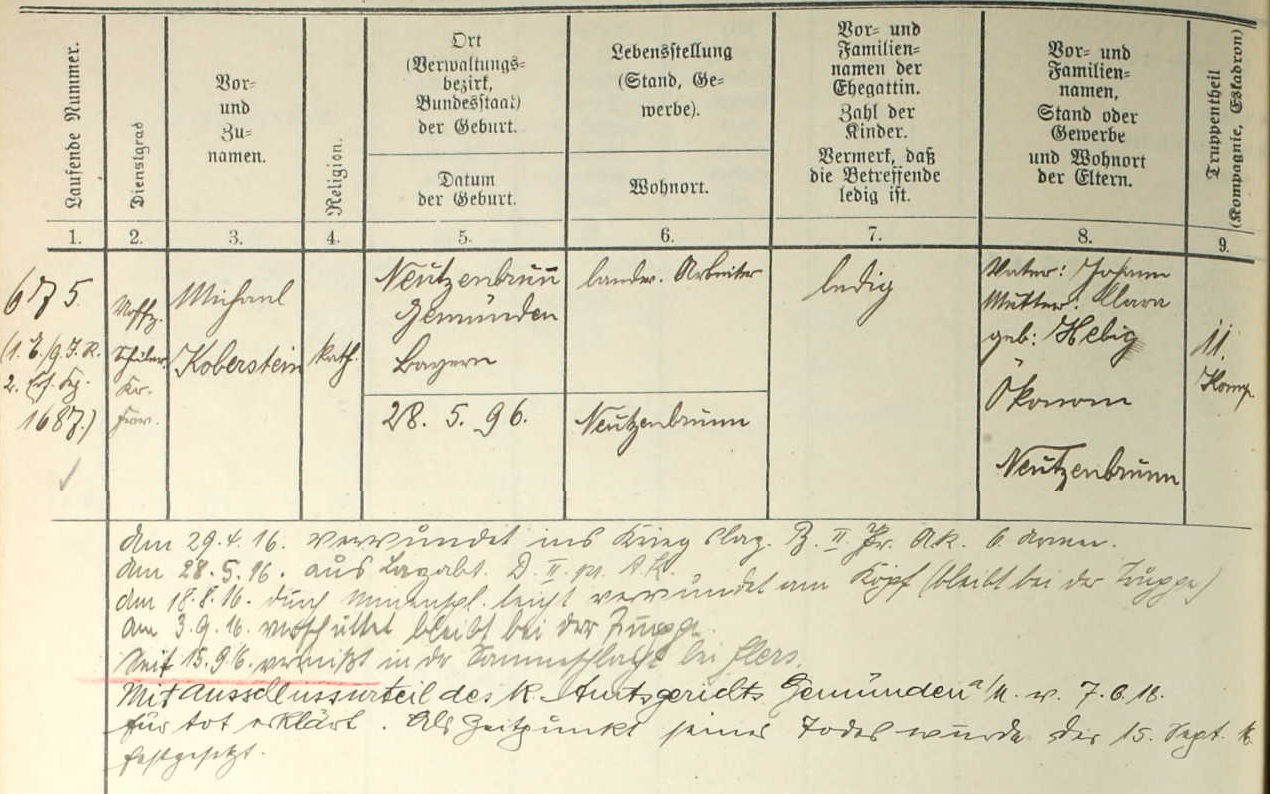 Laufende Nummer.
Dienstgrad
Vor-
und
Zu-
namen.
Religion.
Ort
(Verwaltungs-
bezirk,
Bundesstaat)
der Geburt.
Datum
der Geburt.
Lebensstellung
(Stand, Ge-
werbe).
Wohnort.
Vor- und
Familien-
namen der
Ehegattin.
Zahl der
Kinder.
Vermerk, daß
die Betreffende
ledig ist.
Vor- und
Familien-
namen,
Stand oder
Gewerbe
und Wohnort
der Eltern.
Truppentheil
(Kompagnie, Eskadron)
1. 2. 3. 4. 5. 6. 7. 8. 9.
675.
(1. E./9. J.R.
2. Ers. Kp.
1687.)
Schüler
Michael
Koberstein
kath.
Neutzenbrunn
Gemünden
Bayern
28. 5. 96.
landw. Arbeiter
Neutzenbrunn
ledig
Vater: Johann
Mutter: Klara
geb: Helbig
Ökonom
Neutzenbrunn
11.
Komp.
Am 29.4.16. verwundet ins Kriegslaz. B. II. Br. AK. 6. Armee.
Am 28.5.16. aus Lazabt. D. II. pr. A.K.
Am 18.8.16. durch Minenspl. leicht verwundet am Kopf (bleibt bei der Truppe)
Am 3.9.16. verschüttet bleibt bei der Truppe.
Seit 15.9.16. vermißt in der Sommeschlacht bei Flers.
Mit Ausschlussurteil des K. Amtsgerichts Gemünden a/M. v. 7.6.18.
für tot erklärt. Als Zeitpunkt seines Todes wurde der 15. Sept. 16
festgesetzt.